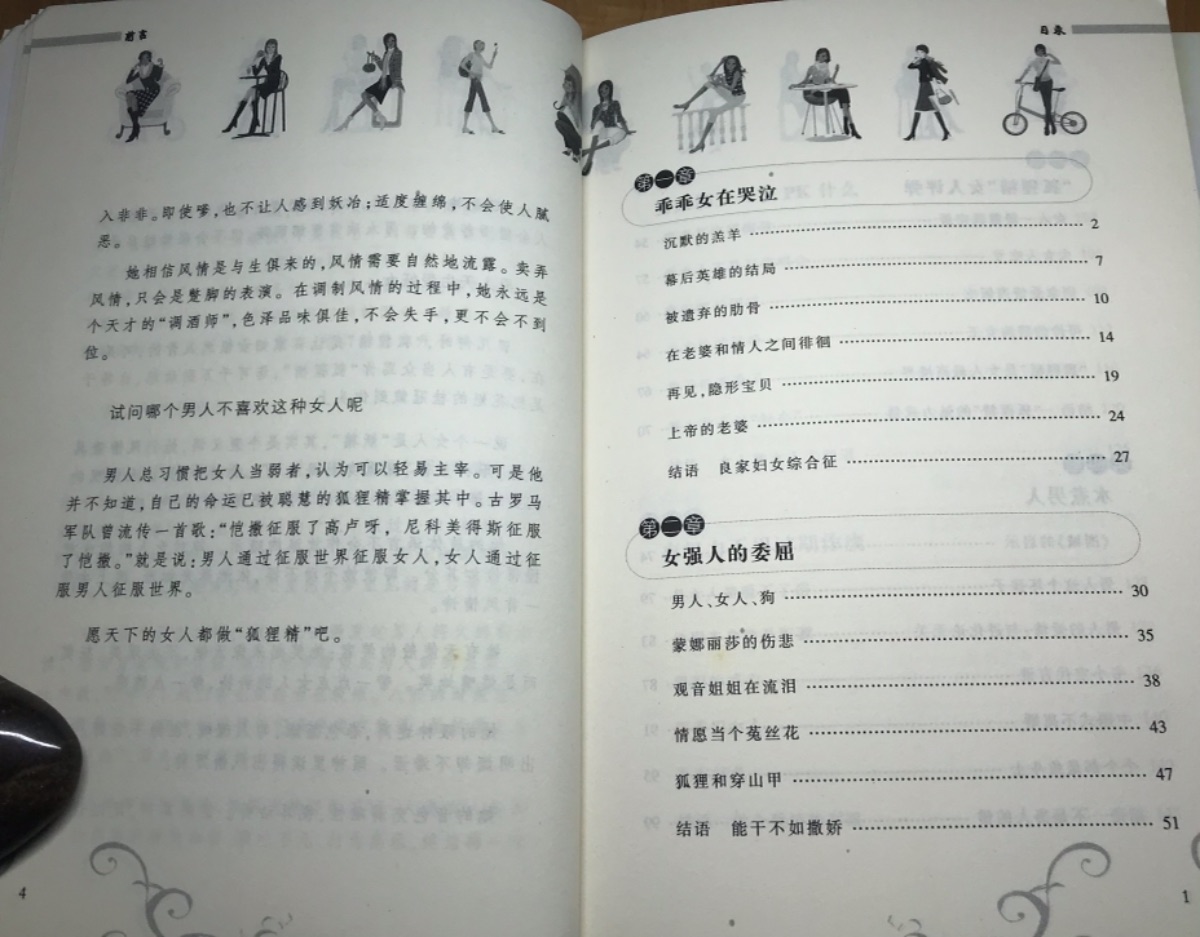 前言
入非非。即使嗲,也不让人感到妖冶;适度缠绵,不会使人腻
恶。
她相信风情是与生俱来的,风情需要自然地流露。卖弄
风情,只会是蹩脚的表演。在调制风情的过程中,她永远是
个天才的“调酒师”,色泽品味俱佳,不会失手,更不会不到
位。
试问哪个男人不喜欢这种女人呢
男人总习惯把女人当弱者,认为可以轻易主宰。可是他
并不知道,自己的命运已被聪慧的狐狸精掌握其中。古罗马
军队曾流传一首歌:“恺撒征服了高卢呀,尼科美得斯征服
了恺撒。”就是说:男人通过征服世界征服女人,女人通过征
服男人征服世界。
愿天下的女人都做“狐狸精”吧。
4
目录
第一章
乖乖女在哭泣
沉默的羔羊 2
幕后英雄的结局 7
被遗弃的肋骨 10
在老婆和情人之间徘徊 14
再见,隐形宝贝 19
上帝的老婆 24
结语 良家妇女综合征 27
第二章
女强人的委屈
男人、女人、狗 30
蒙娜丽莎的伤悲 35
观音姐姐在流泪 38
情愿当个菟丝花 43
狐狸和穿山甲 47
结语 能干不如撒娇 51
1